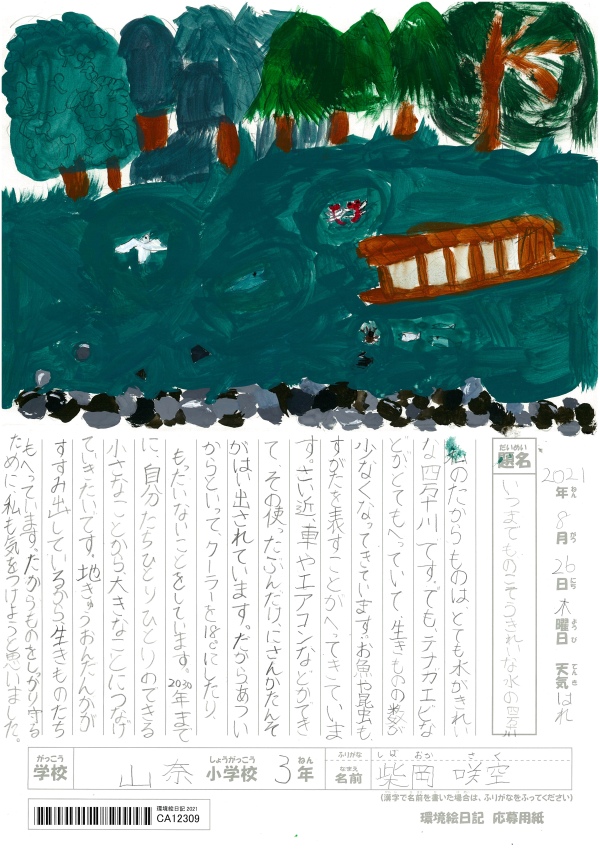 2021年ねん 8月がつ 26日にち 木曜日ようび 天気てんき はれ
題名だいめい いつまでものこそうきれいな水の四万
私のたからものは、とても水がきれい
な四万十川です。でも、テナガエビな
どがとてもへっていて、生きものの数が
少なくなってきています。お魚や昆虫も
すがたを表すことがへってきていま
す。さい近、車やエアコンなどができ
て、その使ったぶんだけ、にさんかたんそ
がはい出されています。だからあつい
からといって、クーラーを18℃にしたり、
もったいないことをしています。2030年まで
に、自分たちひとりひとりのできる
小さなことから大きなことにつなげ
ていきたいです。地きゅうおんだんかが
すすみ出しているから、生きものたち
もへっています。たからものをしっかり守る
ために、私も気をつけようと思いました。
学校がっこう 山奈 小学校しょうがっこう 3年ねん ふりがな しば おか さく
名前なまえ 柴岡 咲空
(漢字で名前を書いた場合は、ふりがなをふってください)
環境絵日記 2021
CA12309
環境絵日記 応募用紙